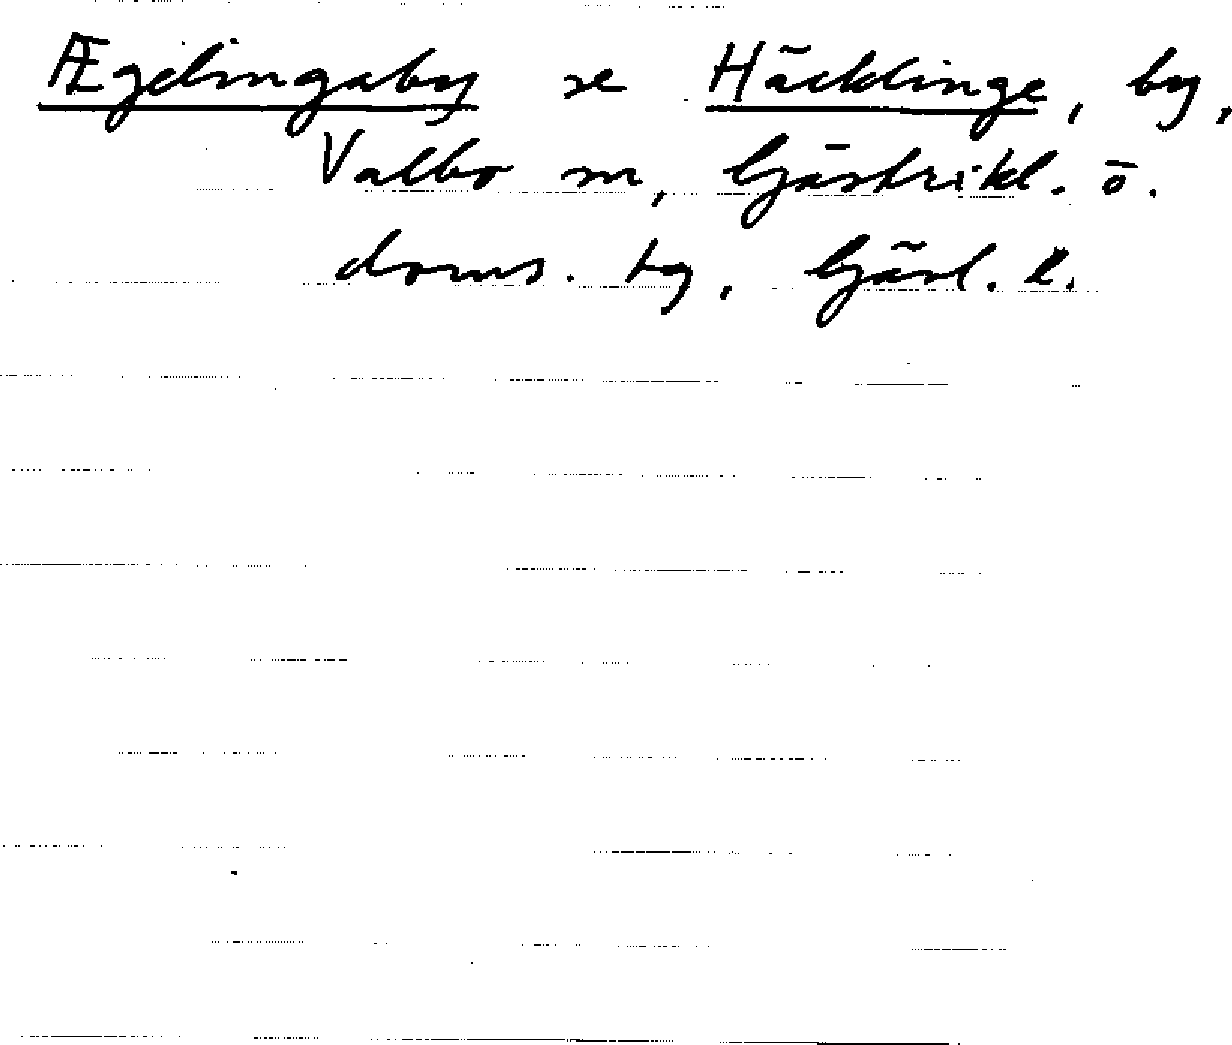 Ægelingaby se Häcklinge, by,
Valbo sn, Gästrikl. ö.
doms. tg, Gävl. l.